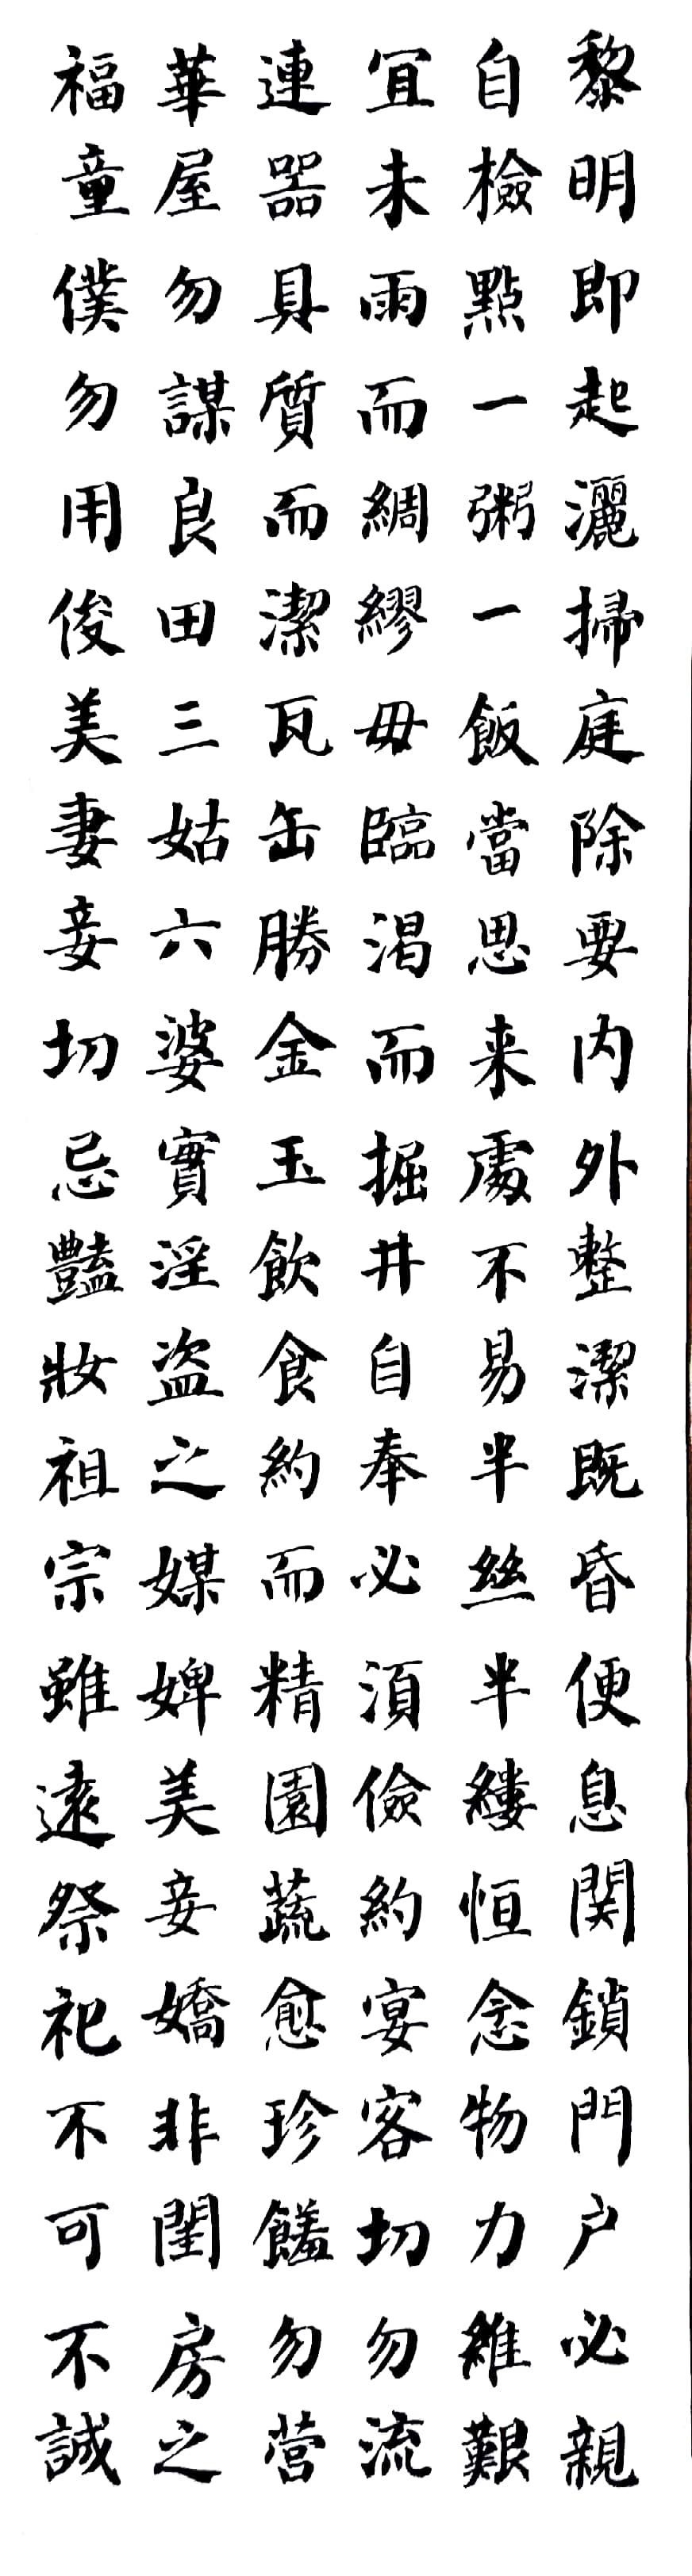 黎明即起灑掃庭除要内外整潔既昏便息関鎖門户必親
自檢點一粥一飯當思来處不易半絲半縷恒念物力維艱
宜未雨而綢繆毋臨渴而掘井自奉必須儉約宴客切勿流
連器具質而潔瓦缶勝金玉飲食約而精園蔬愈珍饈勿营
華屋勿謀良田三姑六婆實淫盗之媒婢美妾嬌非閨房之
福童僕勿用俊美妻妾切忌豔妝祖宗雖遠祭祀不可不誠